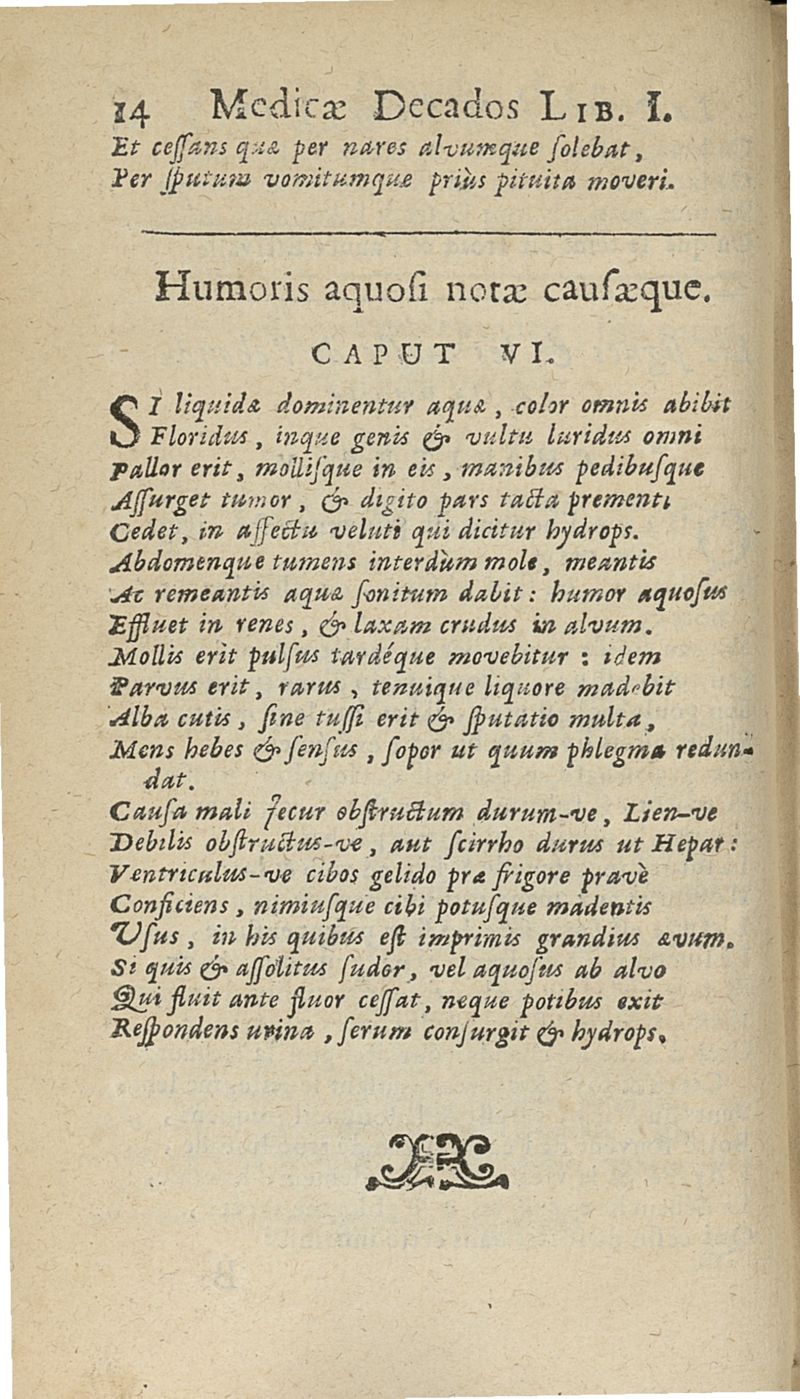 14 Medicæ Decados LIB. I.
Et ceſſans quæ per nares alvumque ſolebat,
Per ſputum vomitumque priùs pituita moveri.
Humoris aquoſi notæ cauſæque.
CAPUT VI.
SI liquidæ dominentur aquæ, color omnis abibit
Floridus, inque genis & vultu luridus omni
Pallor erit, molliſque in eis, manibus pedibuſque
Aſſurget tumor, & digito pars tacta prementi
Cedet, in aſſectu veluti qui dicitur hydrops.
Abdomenque tumens interdùm mole, meantis
Ac remeantis aquæ ſonitum dabit: humor aquoſus
Effluet in renes, & laxam crudus in alvum.
Mollis erit pulſus tardéque movebitur: idem
Parvus erit, rarus, tenuique liquore madebit
Alba cutis, ſine tuſſi erit & ſputatio multa,
Mens hebes & ſenſus, ſopor ut quum phlegma redun-
dat.
Cauſa mali Jecur obſtructum durum-ve, Lien-ve
Debilis obſtructus-ve, aut ſcirrho durus ut Hepar:
Ventriculus-ve cibos gelido præ frigore pravè
Conficiens, nimiuſque cibi potuſque madentis
Uſus, in his quibus eſt imprimis grandius ævum.
Si quis & aſſolitus ſudor, vel aquoſus ab alvo
Qui fluit ante fluor ceſſat, neque potibus exit
Reſpondens urina, ſerum conſurgit & hydrops.